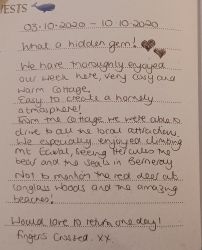 ESTS
03.10.2020 - 10.10.2020
What a hidden gem!
We have thoroughly enjoyed
our week here, very cosy and
warm cottage.
Easy to create a homely
atmosphere!
From the cottage we were able to
drive to all the local attractions.
We especially enjoyed climbing
Mt Eaval, finding Hercules the
bear and the seals in Berneray
Not to mention the red deer at
Langlass woods and the amazing
beaches!
Would love to return one day!
fingers crossed. xx